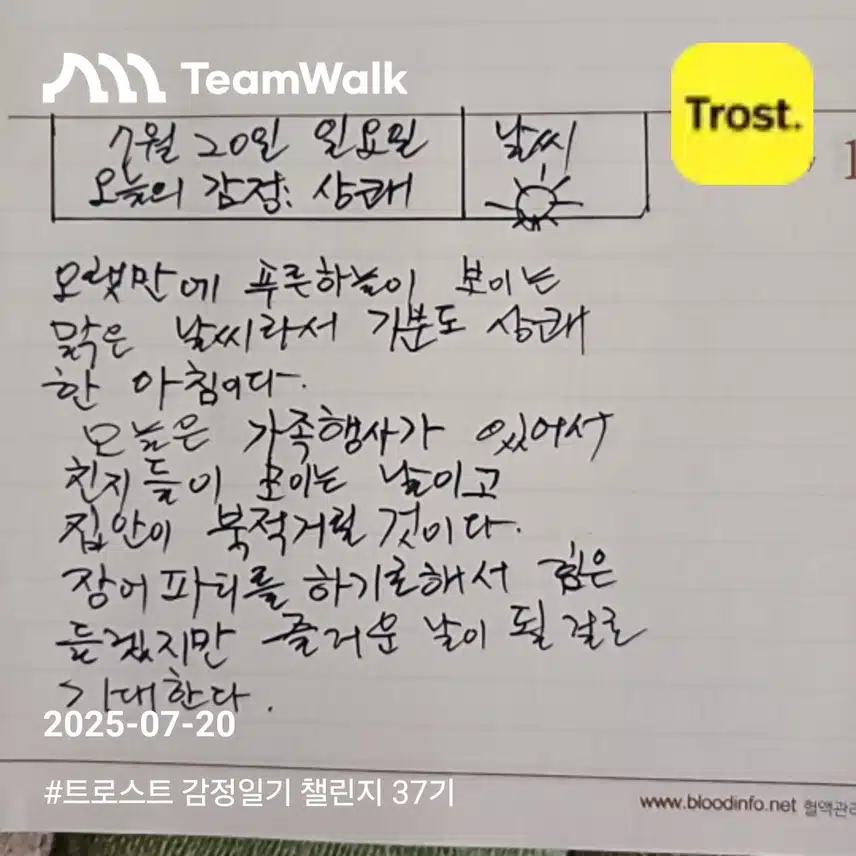 TeamWalk
Trost.
7월 20일 일요일
날씨
오늘의 감정: 상쾌
오랫만에 푸른하늘이 보이는
맑은 날씨라서 기분도 상쾌
한 아침이다.
오늘은 가족행사가 있어서
친지들이 모이는 날이고
집안이 북적거릴 것이다.
장어파티를 하기로해서 힘은
듥겠지만 즐거운 날이 될걸로
기대한다.
2025-07-20
#트로스트 감정일기 챌린지 37기
www.bloodinfo.net 혈액관리